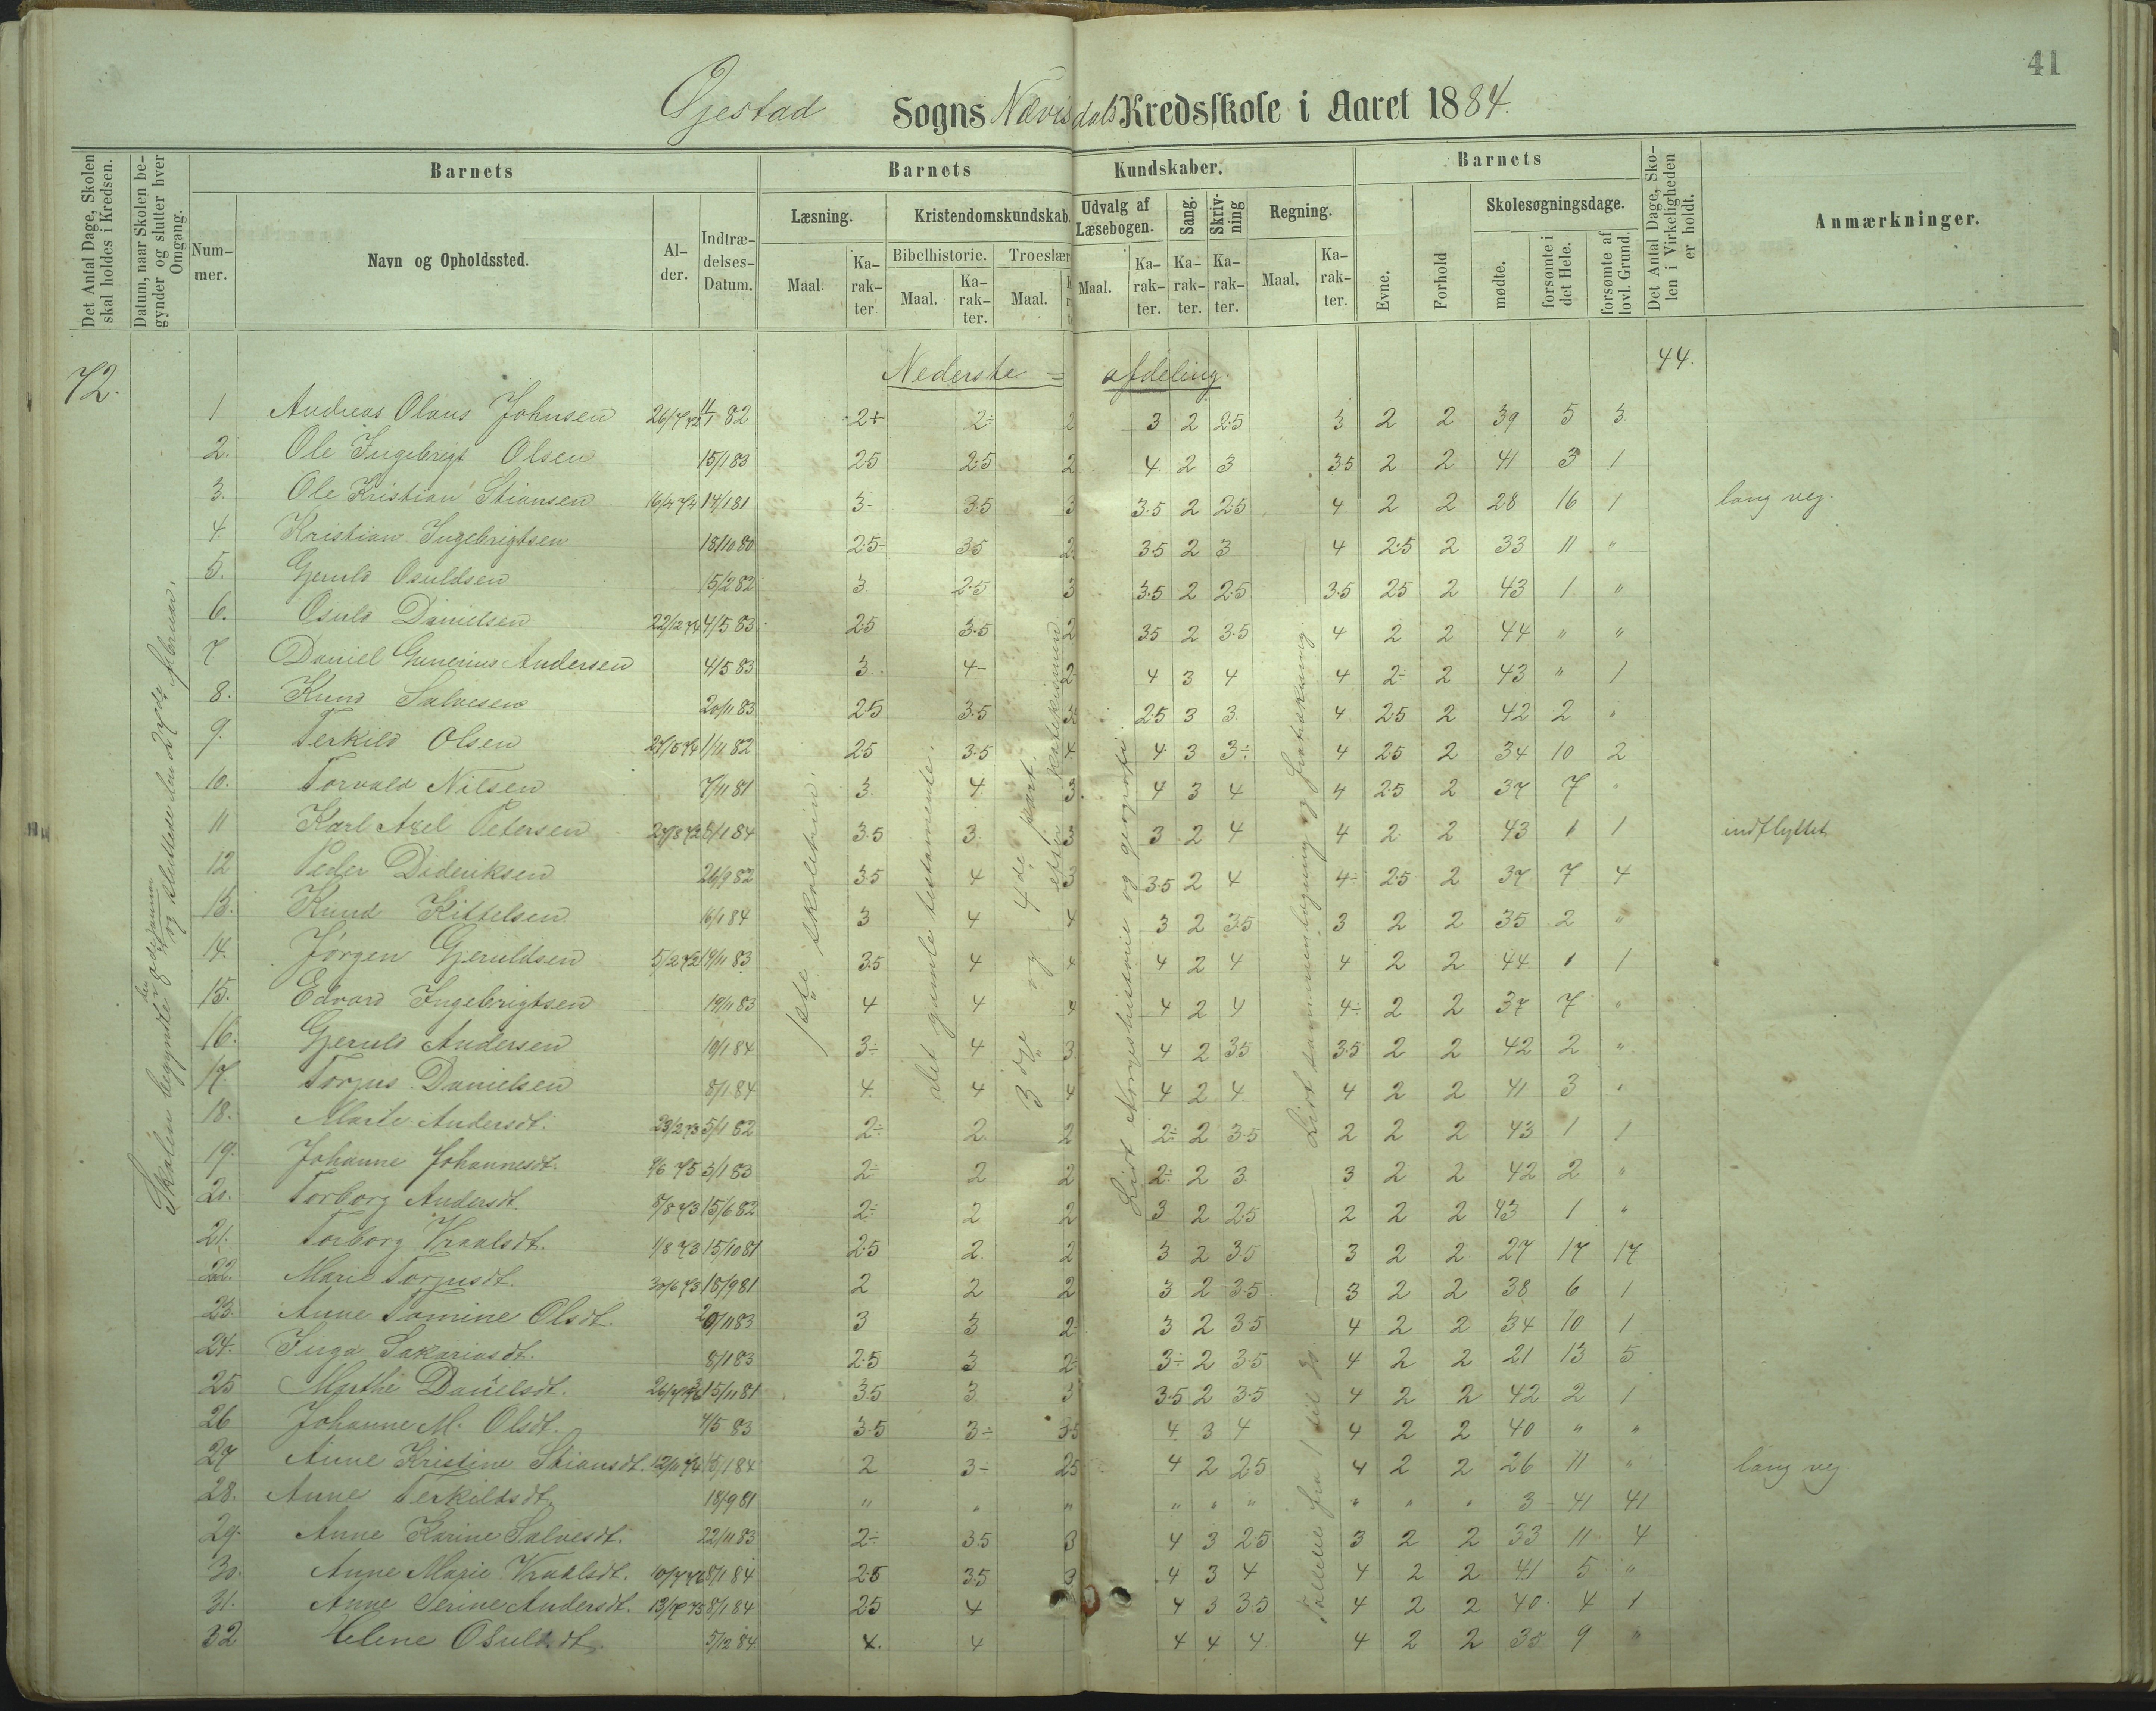 41
Øjestad Sogns Nævisdals Kredsskole i Aaret 1884.
Det Antal Dage, Skolen skal holdes i Kredsen.
Datum, naar Skolen begynder og slutter hver Omgang.
Barnets
Nummer.
Navn og Opholdssted.
Alder.
Indtrædelses-Datum.
Barnets Kundskaber.
Læsning.
Maal.
Karakter
Kristendomskundskab.
Bibelhistorie.
Maal.
Karakter.
Troeslær
Maal.
Udvalg af Læsebogen.
Maal.
Karakter.
Sang.
Karakter.
Skrivning
Karakter.
Regning.
Maal.
Karakter.
Barnets
Evne.
Forhold
Skolesøgningsdage.
mødte.
forsømte i det Hele.
forsømte af lovl. Grund.
Det Antal Dage, Skolen i Virkeligheden er holdt.
Anmærkninger.
72. Nederste = afdeling. 44.
1 Andreas Olaus Johnsen 2+ 2÷ 2 3 2 2.5 3 2 2 39 5 3
2. Ole Ingebrigt Olsen 15/1 83 2.5 2.5 2 4 2 3 3.5 2 2 41 3 1
3. Ole Kristian Stiansen 3- 3.5 3 3.5 2 2.5 4 2 2 28 16 1 lang vej.
4. Kristian Ingebrigtsen 18/10 80 2.5÷ 3.5 2 3.5 2 3 4 2.5 2 33 11 "
5. Gjeruld Osuldsen 15/2 82 3 2.5 3 3.5 2 2.5 3.5 2.5 2 43 1 "
6. Osuld Danielsen 22/12 74 4/5 83 2.5 3.5 2 3.5 2 3.5 4 2 2 44 " "
7 Daniel Gunerius Andersen 4/5 83 3 4- 2 4 3 4 4 2÷ 2 43 " 1
8. Knud Salvesen 20/11 83 2.5 3.5 3 2.5 3 3 4 2.5 2 42 2 "
9. Terkild Olsen 1/11 82 2.5 3.5 4 4 3 3÷ 4 2.5 2 34 10 2
10. Torvald Nilsen 7/11 81 3 4 3 4 3 4 4 2.5 2 37 7 "
11 Karl Axel Petersen 3.5 3 3 3 2 4 4 2 2 43 1 1 indflyttet
12 Peder Dideriksen 26/9 82 3.5 4 3 3.5 2 4 4- 2.5 2 37 7 4
13. Knud Kittelsen 16/1 84 3 4 4 3 2 3.5 3 2 2 35 2 "
14. Jörgen Gjeruldsen 5/2 72 19/11 83 3.5 4 4 4 2 4 4 2 2 44 1 1
15. Edvard Ingebrigtsen 19/11 83 4 4 4 4 2 4 4÷ 2 2 37 7 "
16. Gjeruld Andersen 10/1 84 3÷ 4 3 4 2 3.5 3.5 2 2 42 2 "
17 Torjus Danielsen 8/1 84 4 4 4 4 2 4 4 2 2 41 3 "
18. Marte Andersdt. 23/2 73 5/1 82 2÷ 2 2 2÷ 2 3.5 2 2 2 43 1 1
19. Johanne Johannesdt. 9/6 75 3/1 83 2÷ 2 2 2÷ 2 3 3 2 2 42 2 "
20. Torborg Andersdt. 8/8 73 15/6 82 2÷ 2 2 3 2 2.5 2 2 2 43 1 "
21. Torborg Kraalsdt. 1/8 73 15/10 81 2.5 2 2 3 2 3.5 3 2 2 27 17 17
22. Marie Torjusdt. 30/6 73 18/9 81 2 2 2 3 2 3.5 3 2 2 38 6 1
23. Anne Tomine Olsdt. 20/11 83 3 3 2 3 2 3.5 4 2 2 34 10 1
24. Inga Sakariasdt. 8/1 83 2.5 3 2 3÷ 2 3.5 4 2 2 21 13 5
25 Marthe Danielsdt. 15/11 81 3.5 3 3 3.5 2 3.5 4 2 2 42 2 1
26 Johanne M. Olsdt. 4/5 83 3.5 3÷ 3.5 4 3 4 4 2 2 40 " "
27 Anne Kristine Stiansdt. 12/11 74 2 3- 2.5 4 2 2.5 4 2 2 26 11 " lang vej
28. Anne Terkildsdt. 18/9 81 " " " " " " " " " 3 41 41
29. Anne Karine Salvesdt. 22/11 83 2÷ 3.5 3 4 3 2.5 3 2 2 33 11 4
30. Anne Marie Kraalsdt. 8/1 84 2.5 3.5 3 4 3 4 4 2 2 41 5 "
31. Anne Serine Andersdt. 8/1 84 2.5 4 4 3 3.5 4 2 2 40 4 1
32 Helene Osuldsdt. 5/12 84 4. 4 4 4 4 4 2 2 35 9 "
Skolen begyndte og sluttede den 27de februar.
1ste skoletrin.
det gamle testamente.
3dje og 4de part. efter katekismen
Lidt Norgeshistorie og geografi.
Tallene fra 1 til Lidt sammenlægning og fratrækning